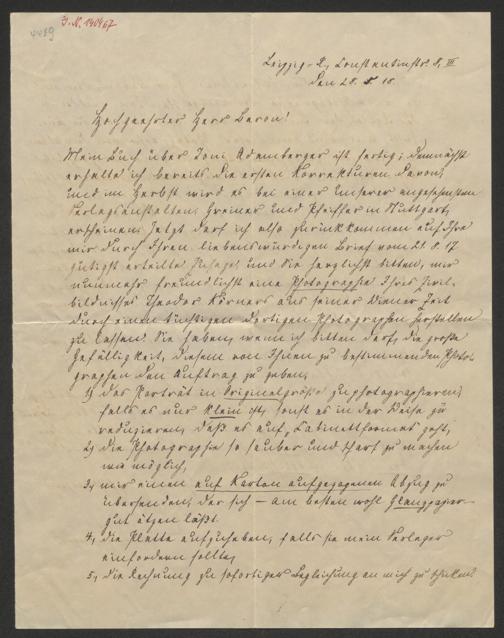 4489
J.N. 140467
Leipzig-R., Constantinstr. 8, III
den 28. 5. 18.
Hochgeehrter Herr Baron!
Mein Buch über Toni Adamberger ist fertig; demnächst
erhalte ich bereits die ersten Korrekturen davon,
und im Herbst wird es bei einer unserer angesehensten
Verlagsanstalten, Greiner und Pfeiffer in Stuttgart,
erscheinen. Jetzt darf ich also zurückkommen auf Ihre
mir durch Ihren liebenswürdigen Brief vom 21. 8. 17
gütigst erteilte Zusage und Sie herzlichst bitten, mir
nunmehr freundlichst eine Photographie Ihres Zivil-
bildnisses Theodor Körners aus seiner Wiener Zeit
durch einen tüchtigen dortigen Photographen herstellen
zu lassen. Sie haben, wenn ich bitten darf, die große
Gefälligkeit, diesem von Ihnen zu bestimmenden Photo-
graphen den Auftrag zu geben,
1, das Porträt in Originalgröße zu photographieren,
falls es nur klein ist, sonst es in der Weise zu
reduzieren, daß es auf Cabinetformat geht,
2, die Photographie so sauber und scharf zu machen
wie möglich,
3, mir einen auf Karton aufgezogenen Abzug zu
übersenden, der sich – am besten wohl Glanzpapier –
gut ätzen läßt.
4, die Platte aufzuheben, falls sie mein Verleger
einfordern sollte,
5, die Rechnung zu sofortiger Begleichung an mich zu schicken.